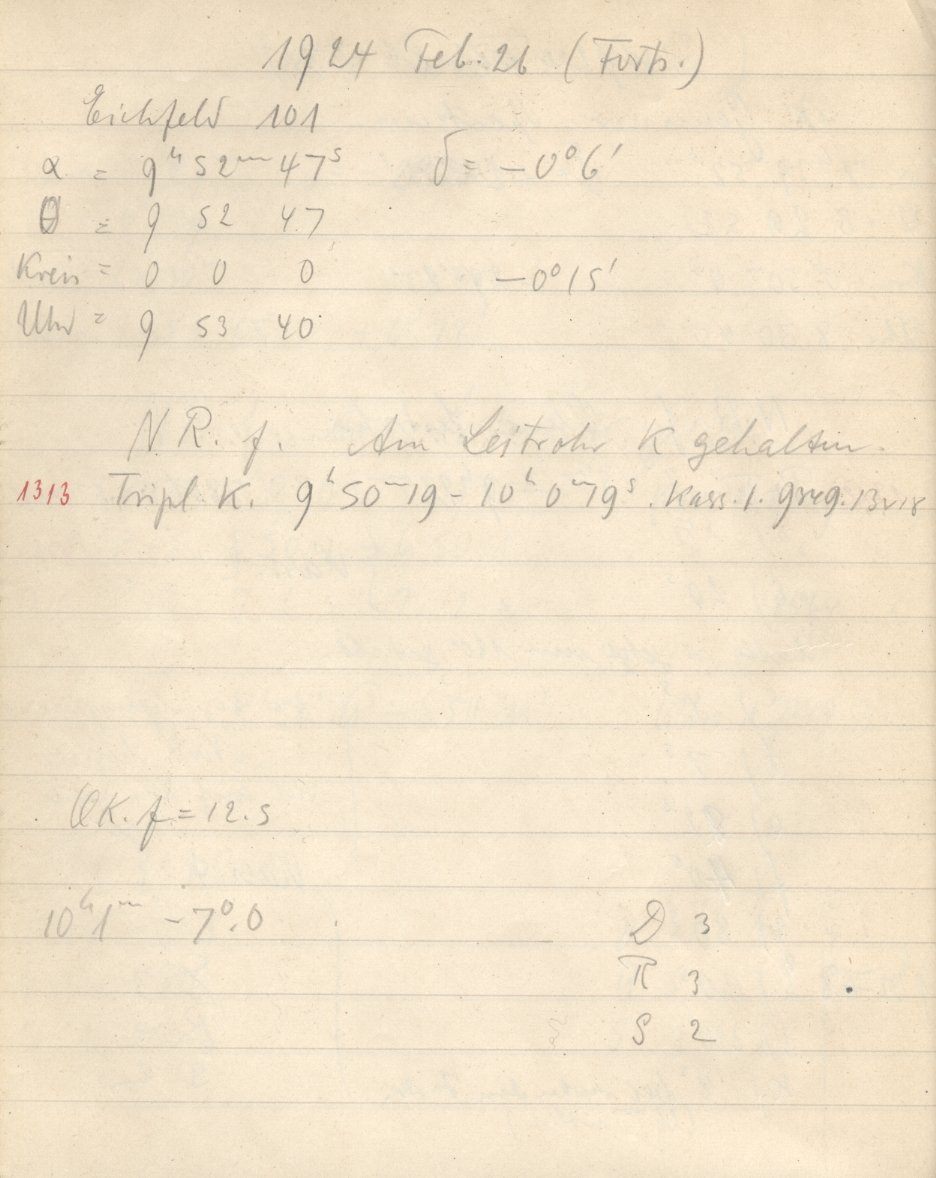 1924 Feb. 26 (Forts.)
Eichfeld 101
α = 9ʰ 52ᵐ 47ˢ δ = −0° 6′
θ = 9 52 47
Kreis = 0 0 0 −0° 15′
Uhr = 9 53 40
N.R. f. Am Leitrohr K gehalten.
1313 Tripl. K. 9ʰ 50ᵐ 19 − 10ʰ 0ᵐ 19ˢ. Kass. 1. 9 × 9. 13 × 18
OK. f = 12.5
10ʰ 1ᵐ −7°.0 D 3
R 3
S 2